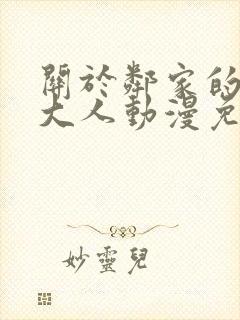 關於鄰家的
大人動漫免
妙靈兒